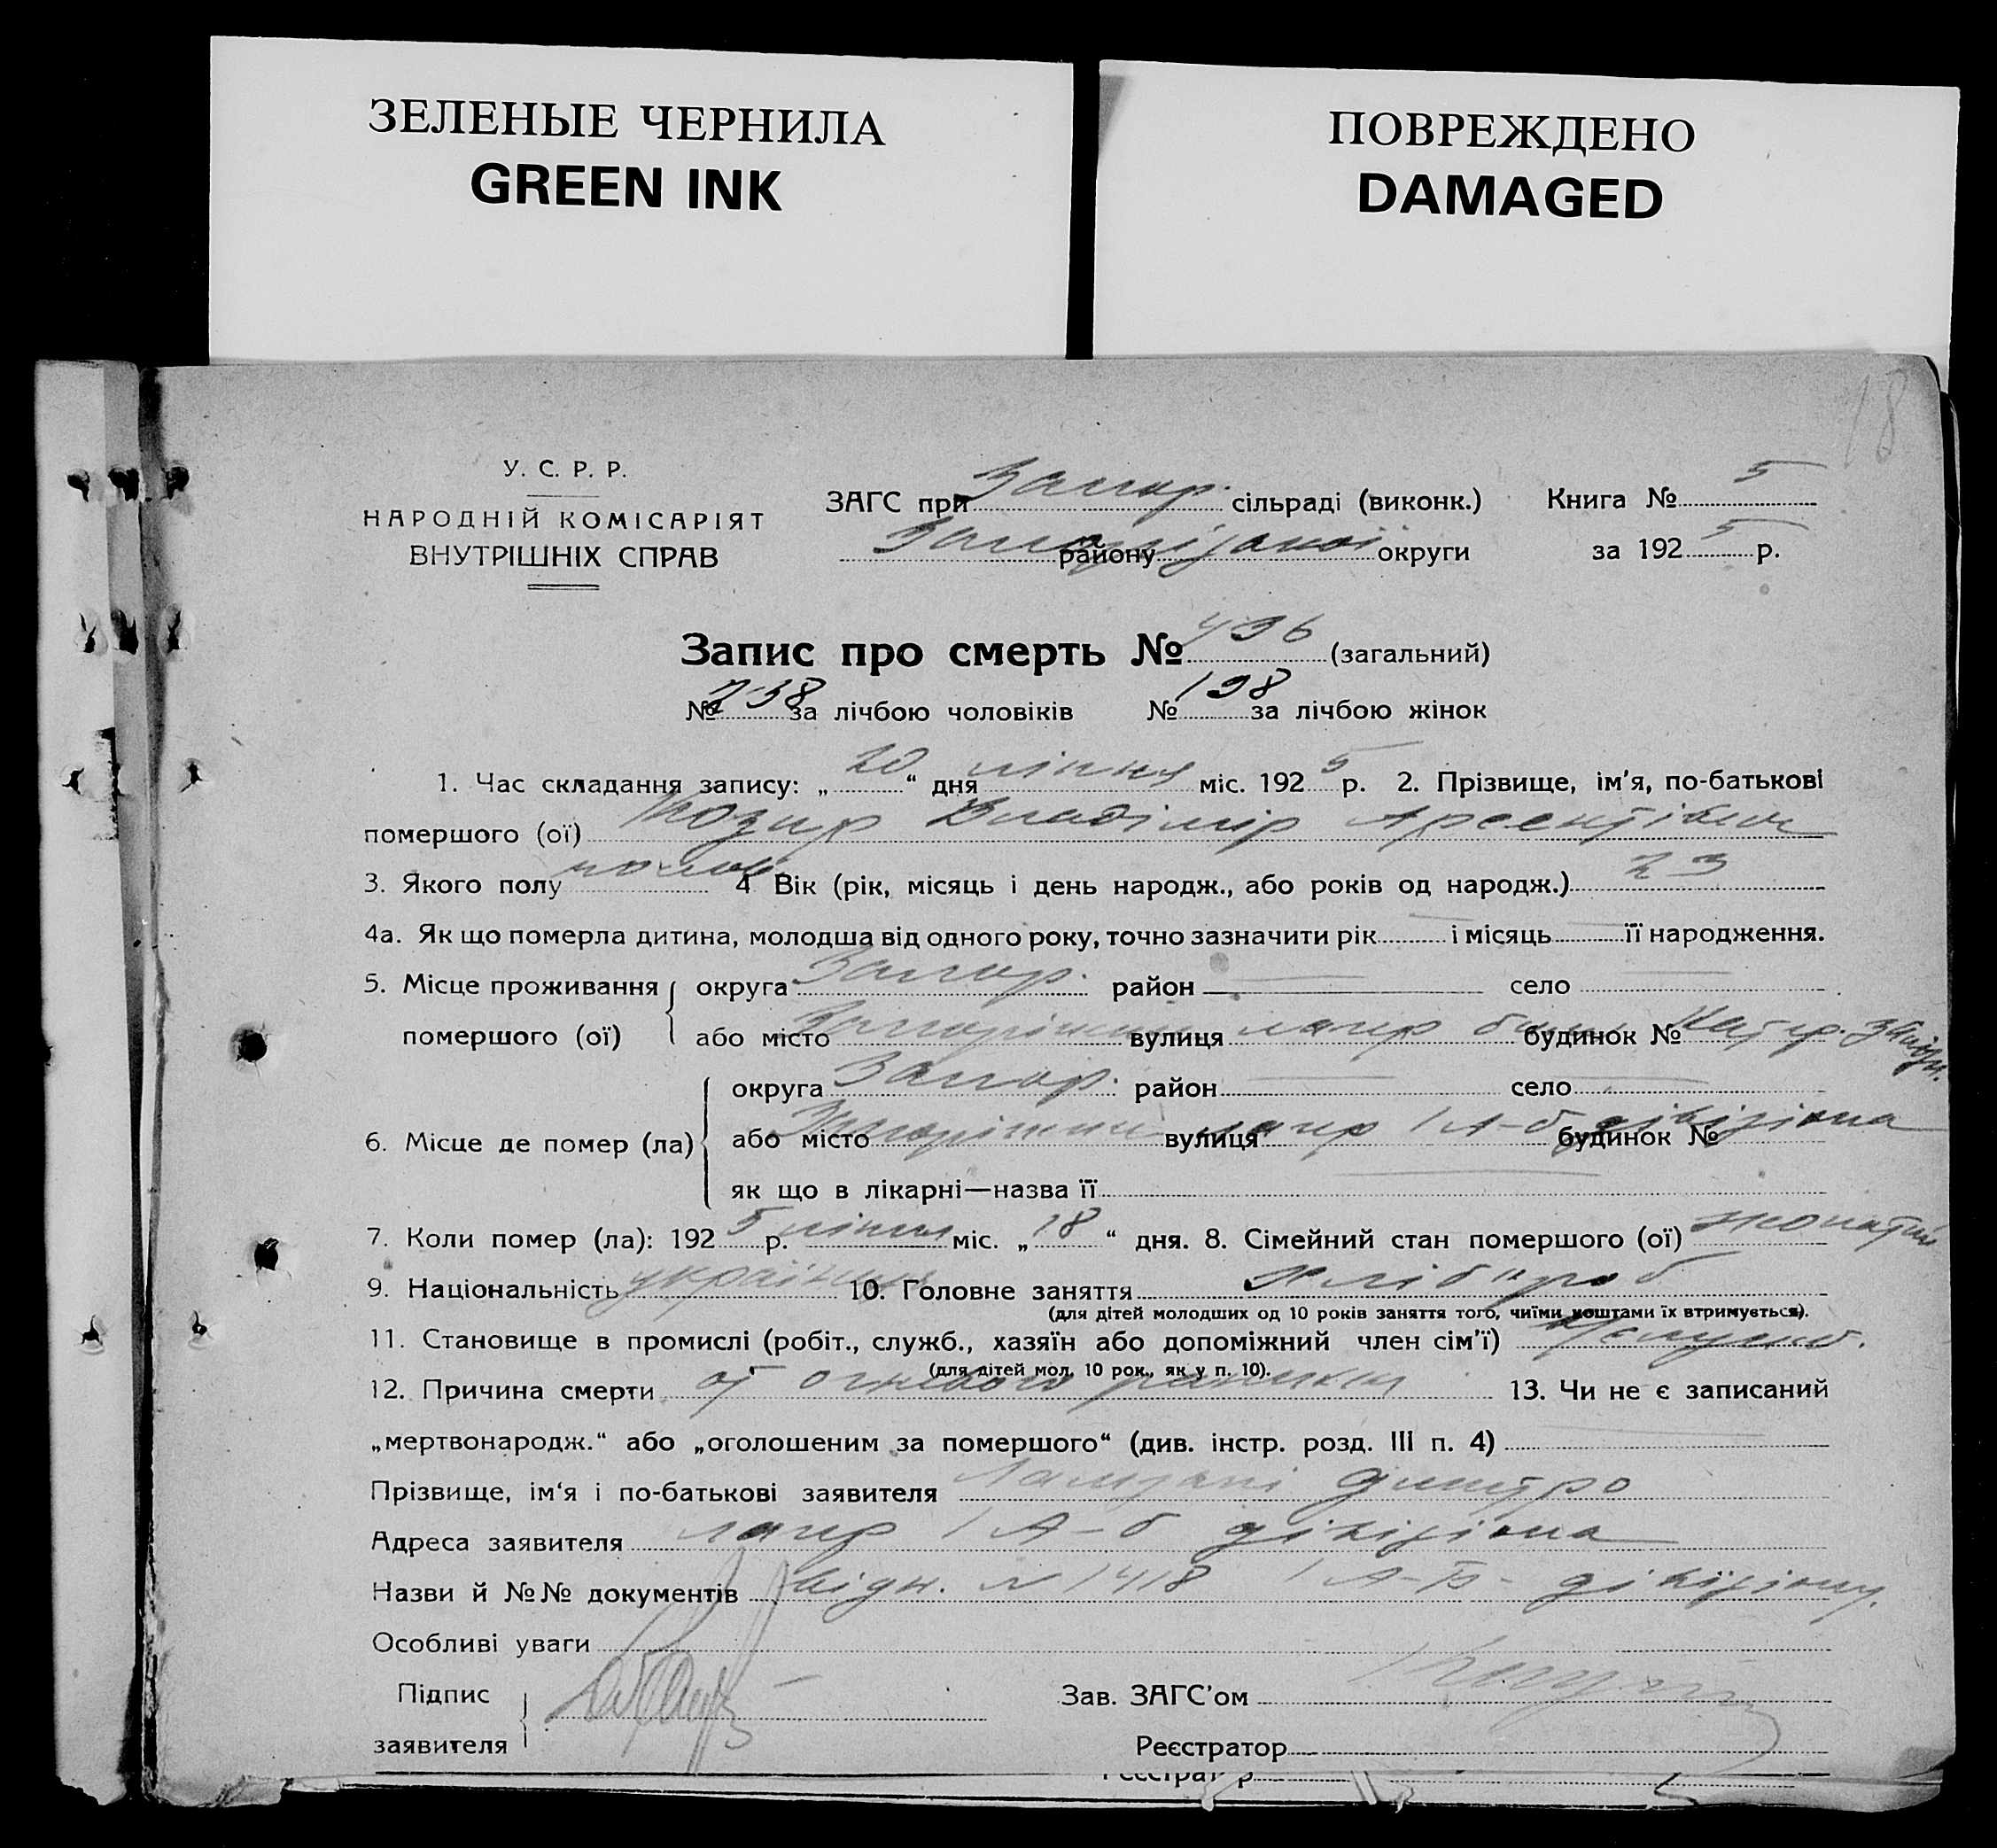 ЗЕЛЕНЫЕ ЧЕРНИЛА
GREEN INK
ПОВРЕЖДЕНО
DAMAGED
18
У. С. Р. Р.
НАРОДНІЙ КОМІСАРІЯТ
ВНУТРІШНІХ СПРАВ
ЗАГС при Запор. сільраді (виконк.) Книга № 5
району Запорізької округи за 1925 р.
Запис про смерть № 436 (загальний)
№ 238 за лічбою чоловіків № 198 за лічбою жінок
1. Час складання запису: „20“ дня липня міс. 1925 р. 2. Прізвище, ім'я, по-батькові
помершого (ої) Козир Владімір Арсентієвич
3. Якого полу чолов. 4 Вік (рік, місяць і день народж., або років од народж.) 23
4а. Як що померла дитина, молодша від одного року, точно зазначити рік і місяць її народження.
5. Місце проживання округа Запор. район село
помершого (ої) або місто Запоріжжя вулиця лагер будинок №
округа Запор. район село
6. Місце де помер (ла) або місто Запоріжжя вулиця лагер 1 А-б дівізіона будинок №
як що в лікарні—назва її
7. Коли помер (ла): 1925 р. липня міс. „18“ дня. 8. Сімейний стан помершого (ої) жонатий
9. Національність українець 10. Головне заняття хлібороб
(для дітей молодших од 10 років заняття того, чиїми коштами їх втримується).
11. Становище в промислі (робіт., служб., хазяїн або допоміжний член сім'ї)
(для дітей мол. 10 рок., як у п. 10).
12. Причина смерти от огневого ранения 13. Чи не є записаний
„мертвонародж.“ або „оголошеним за помершого“ (див. інстр. розд. III п. 4)
Прізвище, ім'я і по-батькові заявителя Дмитро
Адреса заявителя лагер 1 А-б дівізіона
Назви й №№ документів відн. № 1418 1 А-Б- дівізіону.
Особливі уваги
Підпис
заявителя
Зав. ЗАГС'ом
Реєстратор
Реєстратор